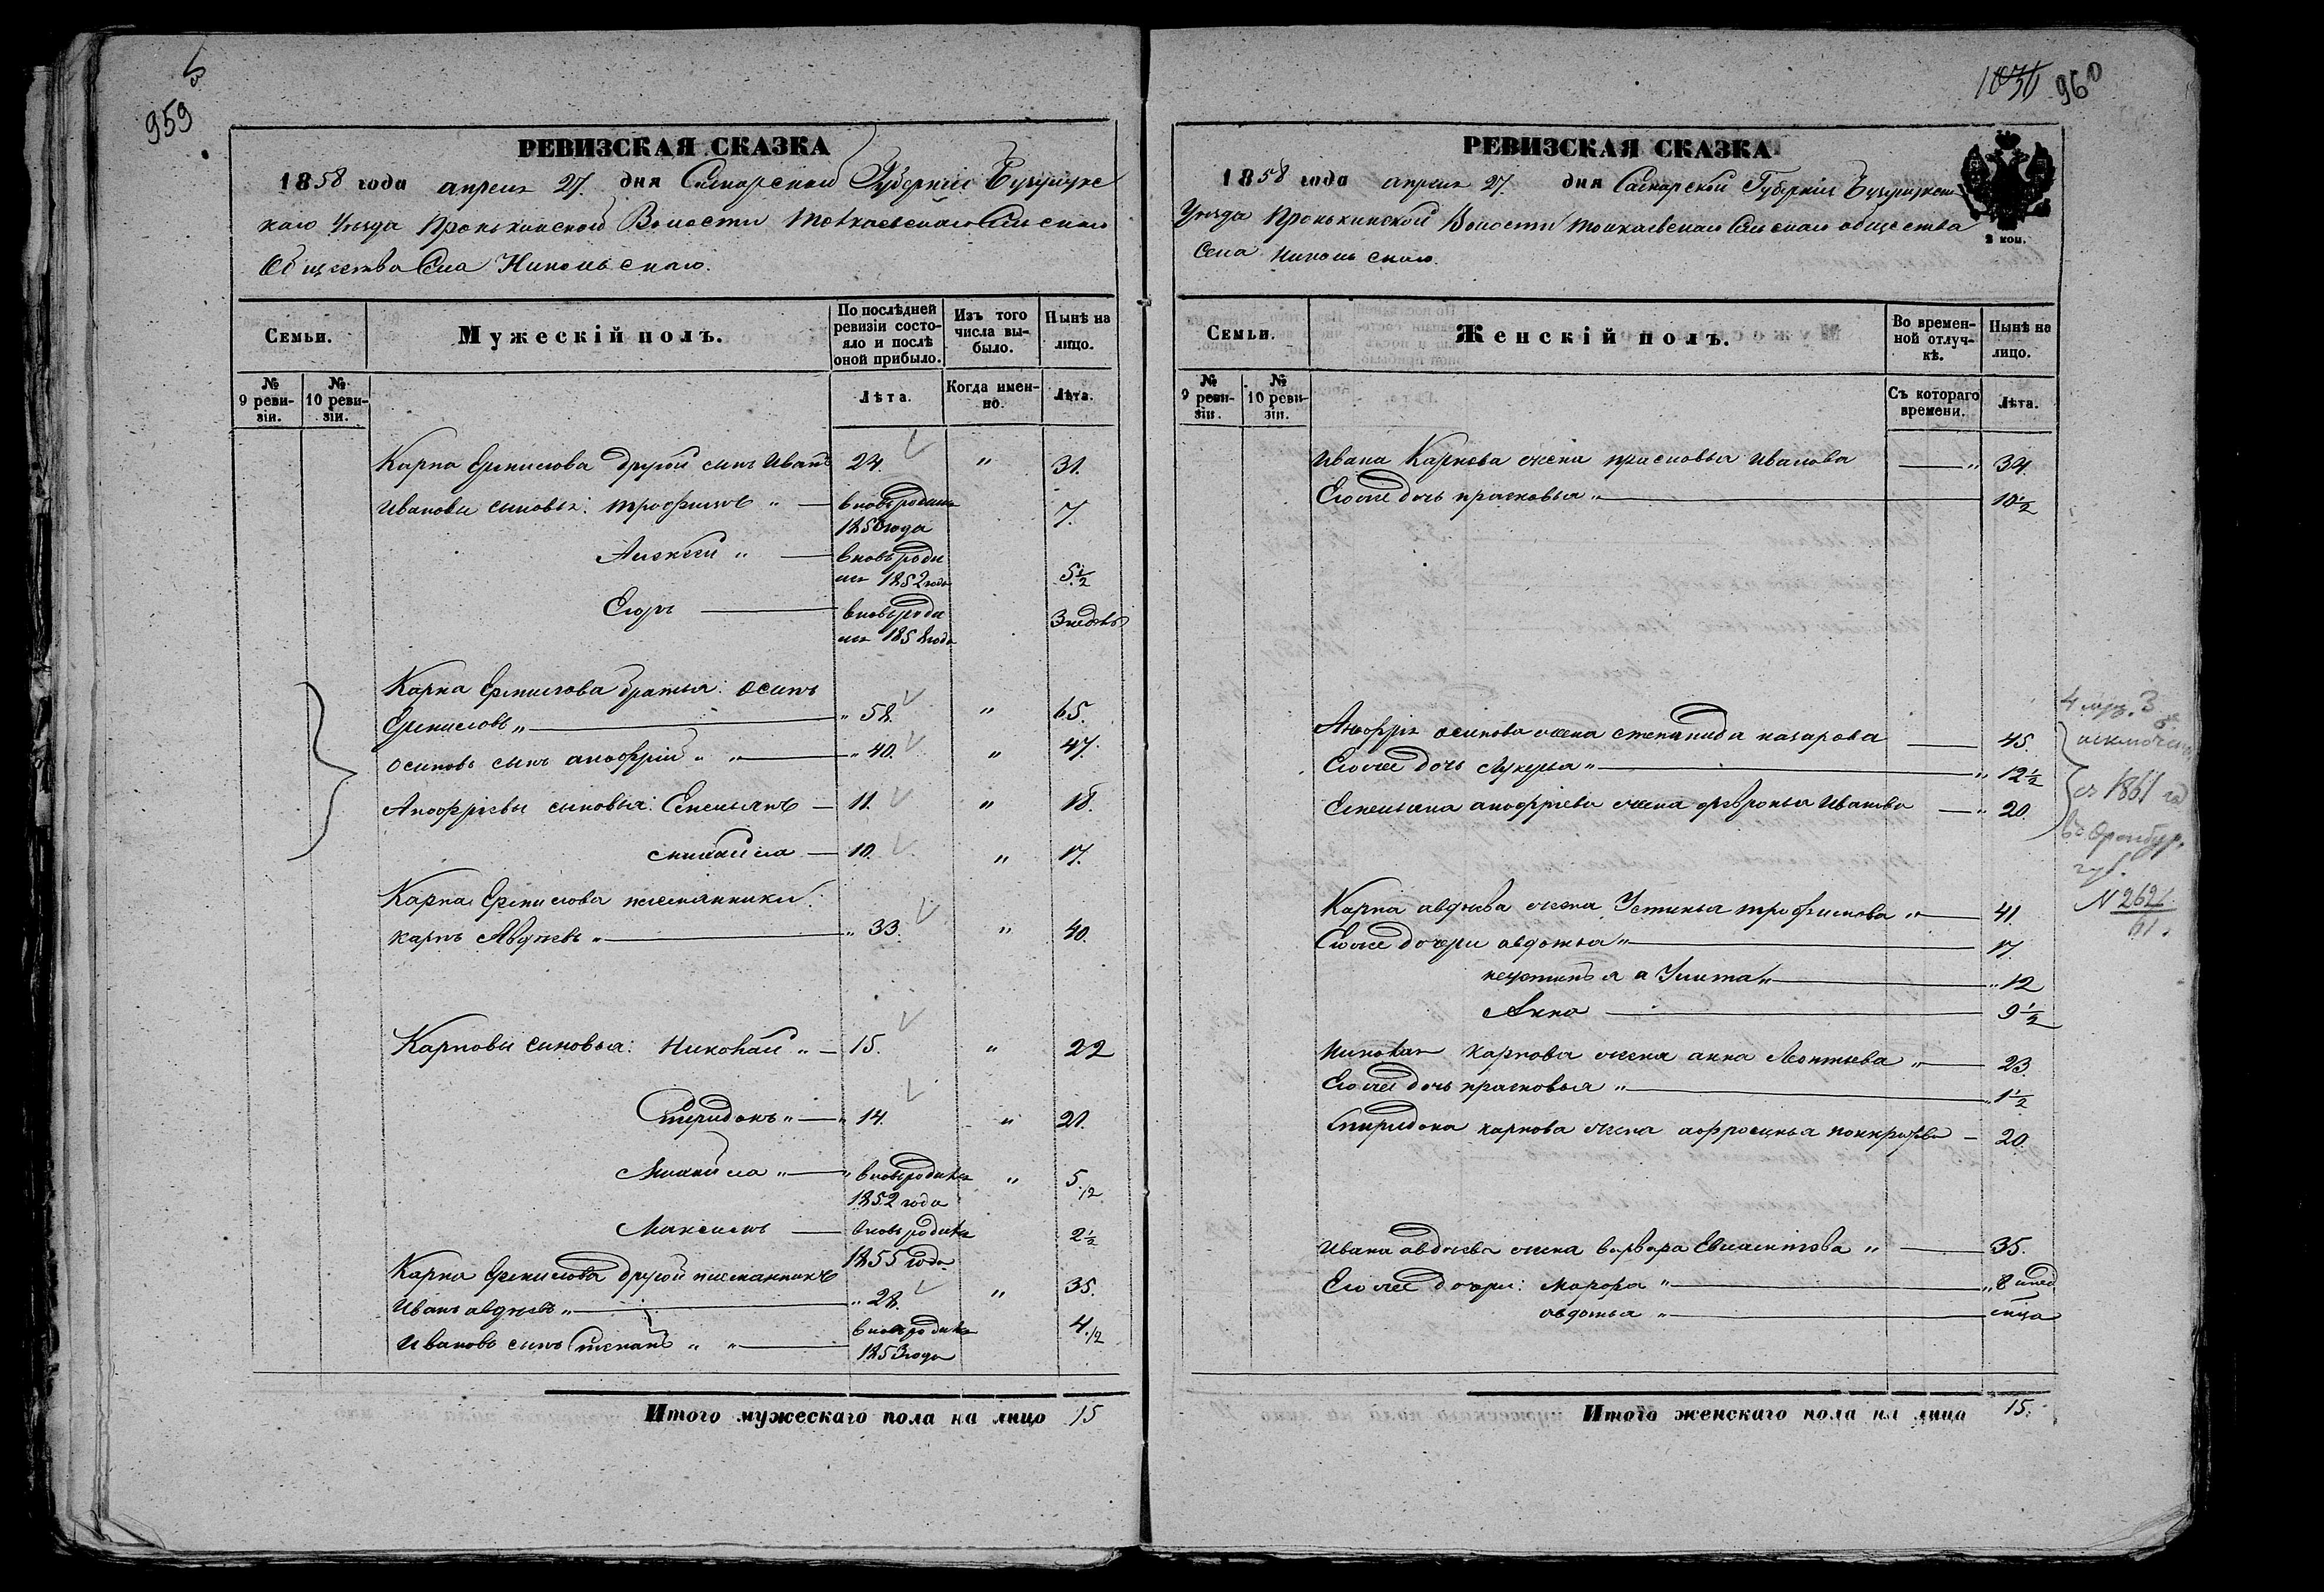 959
РЕВИЗСКАЯ СКАЗКА
1858 года апреля 27. дня Самарской Губернии Бузулукс
каго Уезда Пронькинской Волости Токкаевскаго Сельскаго
Общества Села Никольскаго.
Семьи.
Мужескій полъ.
По послѣдней ревизіи состо-
яло и послѣ оной прибыло.
Изъ того числа вы-
было.
Нынѣ на лицо.
№ 9 реви-
зіи.
№ 10 реви-
зіи.
Лѣта.
Когда имен-
но.
Лѣта.
Карпа Ермилова другой сынъ Иванъ 24. " 31.
Ивановы сыновья: Трофимъ " вновь родился 1850 года 7.
Алексей " вновь роди
лся 1852 года 5 1/2
Егоръ вновь роди
лся 1858 года 3 недель
Карпа Ермилова братья: Осипъ
Ермиловъ " " 58. " 65.
Осиповъ сынъ Аноффрій " " 40. " 47.
Аноффріевы сыновья: Емельянъ 11. " 18.
Михайла 10. " 17.
Карпа Ермилова племянники:
Карпъ Авдеевъ " " 33. " 40.
Карповы сыновья: Николай " 15. " 22
Спиридонъ " " 14. " 21.
Михайла " " вновь родился
1852 года " 5 1/2
Максимъ вновь родился
1855 года 2 1/2
Карпа Ермилова другой племянникъ
Иванъ Авдеевъ " " 28. " 35.
Ивановъ сынъ Степанъ " " вновь родился
1853 года 4 1/2
Итого мужескаго пола на лицо 15
1030 960
РЕВИЗСКАЯ СКАЗКА
2 коп.
1858 года апреля 27. дня Самарской Губерніи Бузулукскаго
Уезда Пронькинской Волости Токкаевскаго Сельскаго общества
Села Никольскаго.
Семьи.
Женскій полъ.
Во времен-
ной отлуч-
кѣ.
Нынѣ на лицо.
№ 9 реви-
зіи.
№ 10 реви-
зіи.
Съ котораго
времени.
Лѣта.
Ивана Карпова жена Ивалова " 34.
Его же дочь Прасковья " 10 1/2
Аноффрія Осипова жена Степанида Назарова 45.
Его же дочь Лукерья " " 12 1/2
Емельяна Аноффріева жена Февронья Иванова " 20.
4 муж. 3
исключен
съ 1861 год
въ Оренбур.
губ.
N 262
61.
Карпа Авдеева жена Устинья Трофимова " 41.
Его же дочери Авдотья " 17.
Улита " " 12
Анна 9 1/2
Николая Карпова жена Анна Леонтьева " 23.
Его же дочь Прасковья " " 1 1/2
Спиридона Карпова жена 20.
Ивана Авдеева жена Варвара " 35.
Его же дочери: " " 8
Авдотья "
Итого женскаго пола на лицо 15.